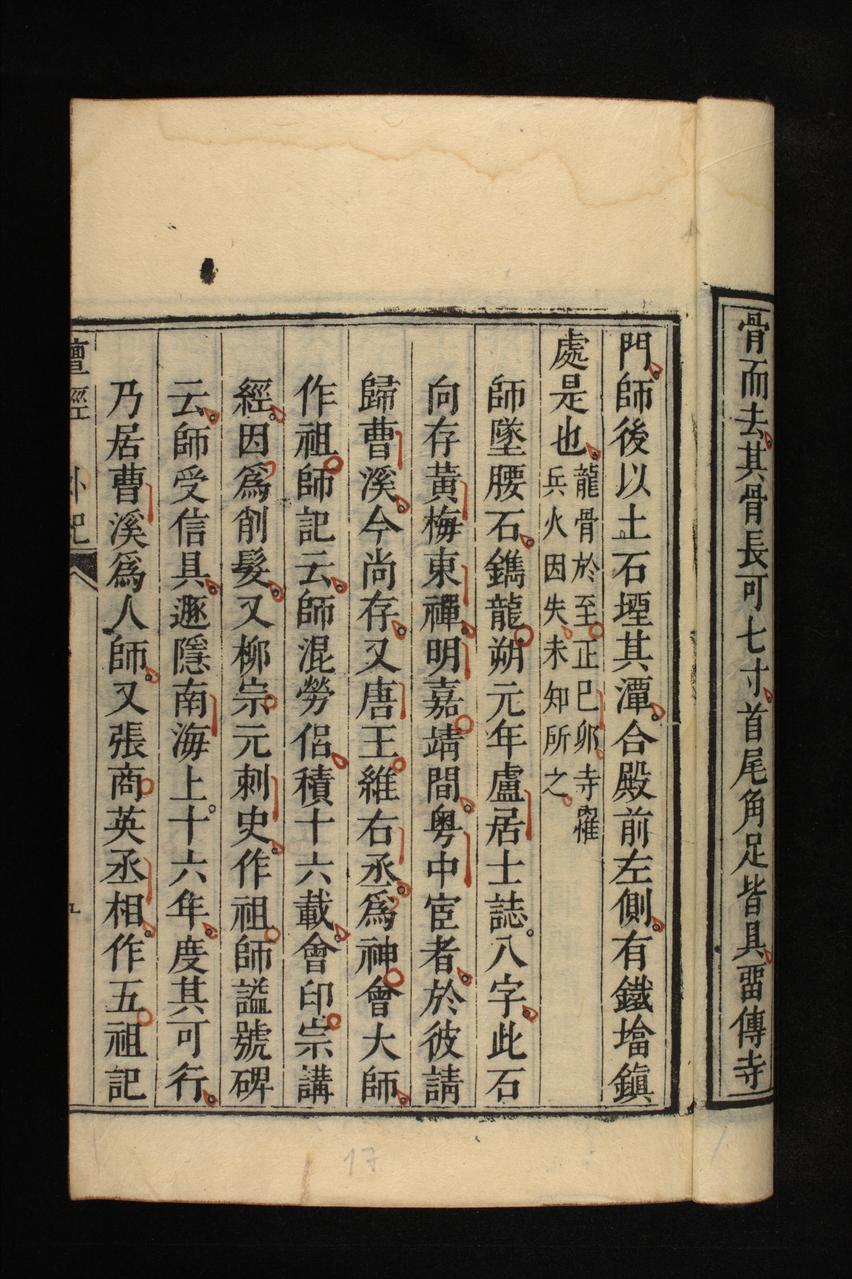 骨而去其骨長可七寸首尾角足皆具畱傳寺
門師後以土石堙其潭今殿前左側有鐵墖鎮
處是也龍骨於至正巳卯寺罹
兵火因失未知所之
師墜腰石鐫龍朔元年盧居士誌八字此石
向存黃梅東禪明嘉靖間粵中宦者於彼請
歸曹溪今尚存又唐王維右丞爲神會大師
作祖師記云師混勞侶積十六載會印宗講
經因爲削髮又柳宗元刺史作祖師謚號碑
云師受信具遯隱南海上十六年度其可行
乃居曹溪爲人師又張商英丞相作五祖記
壇經 外紀
17